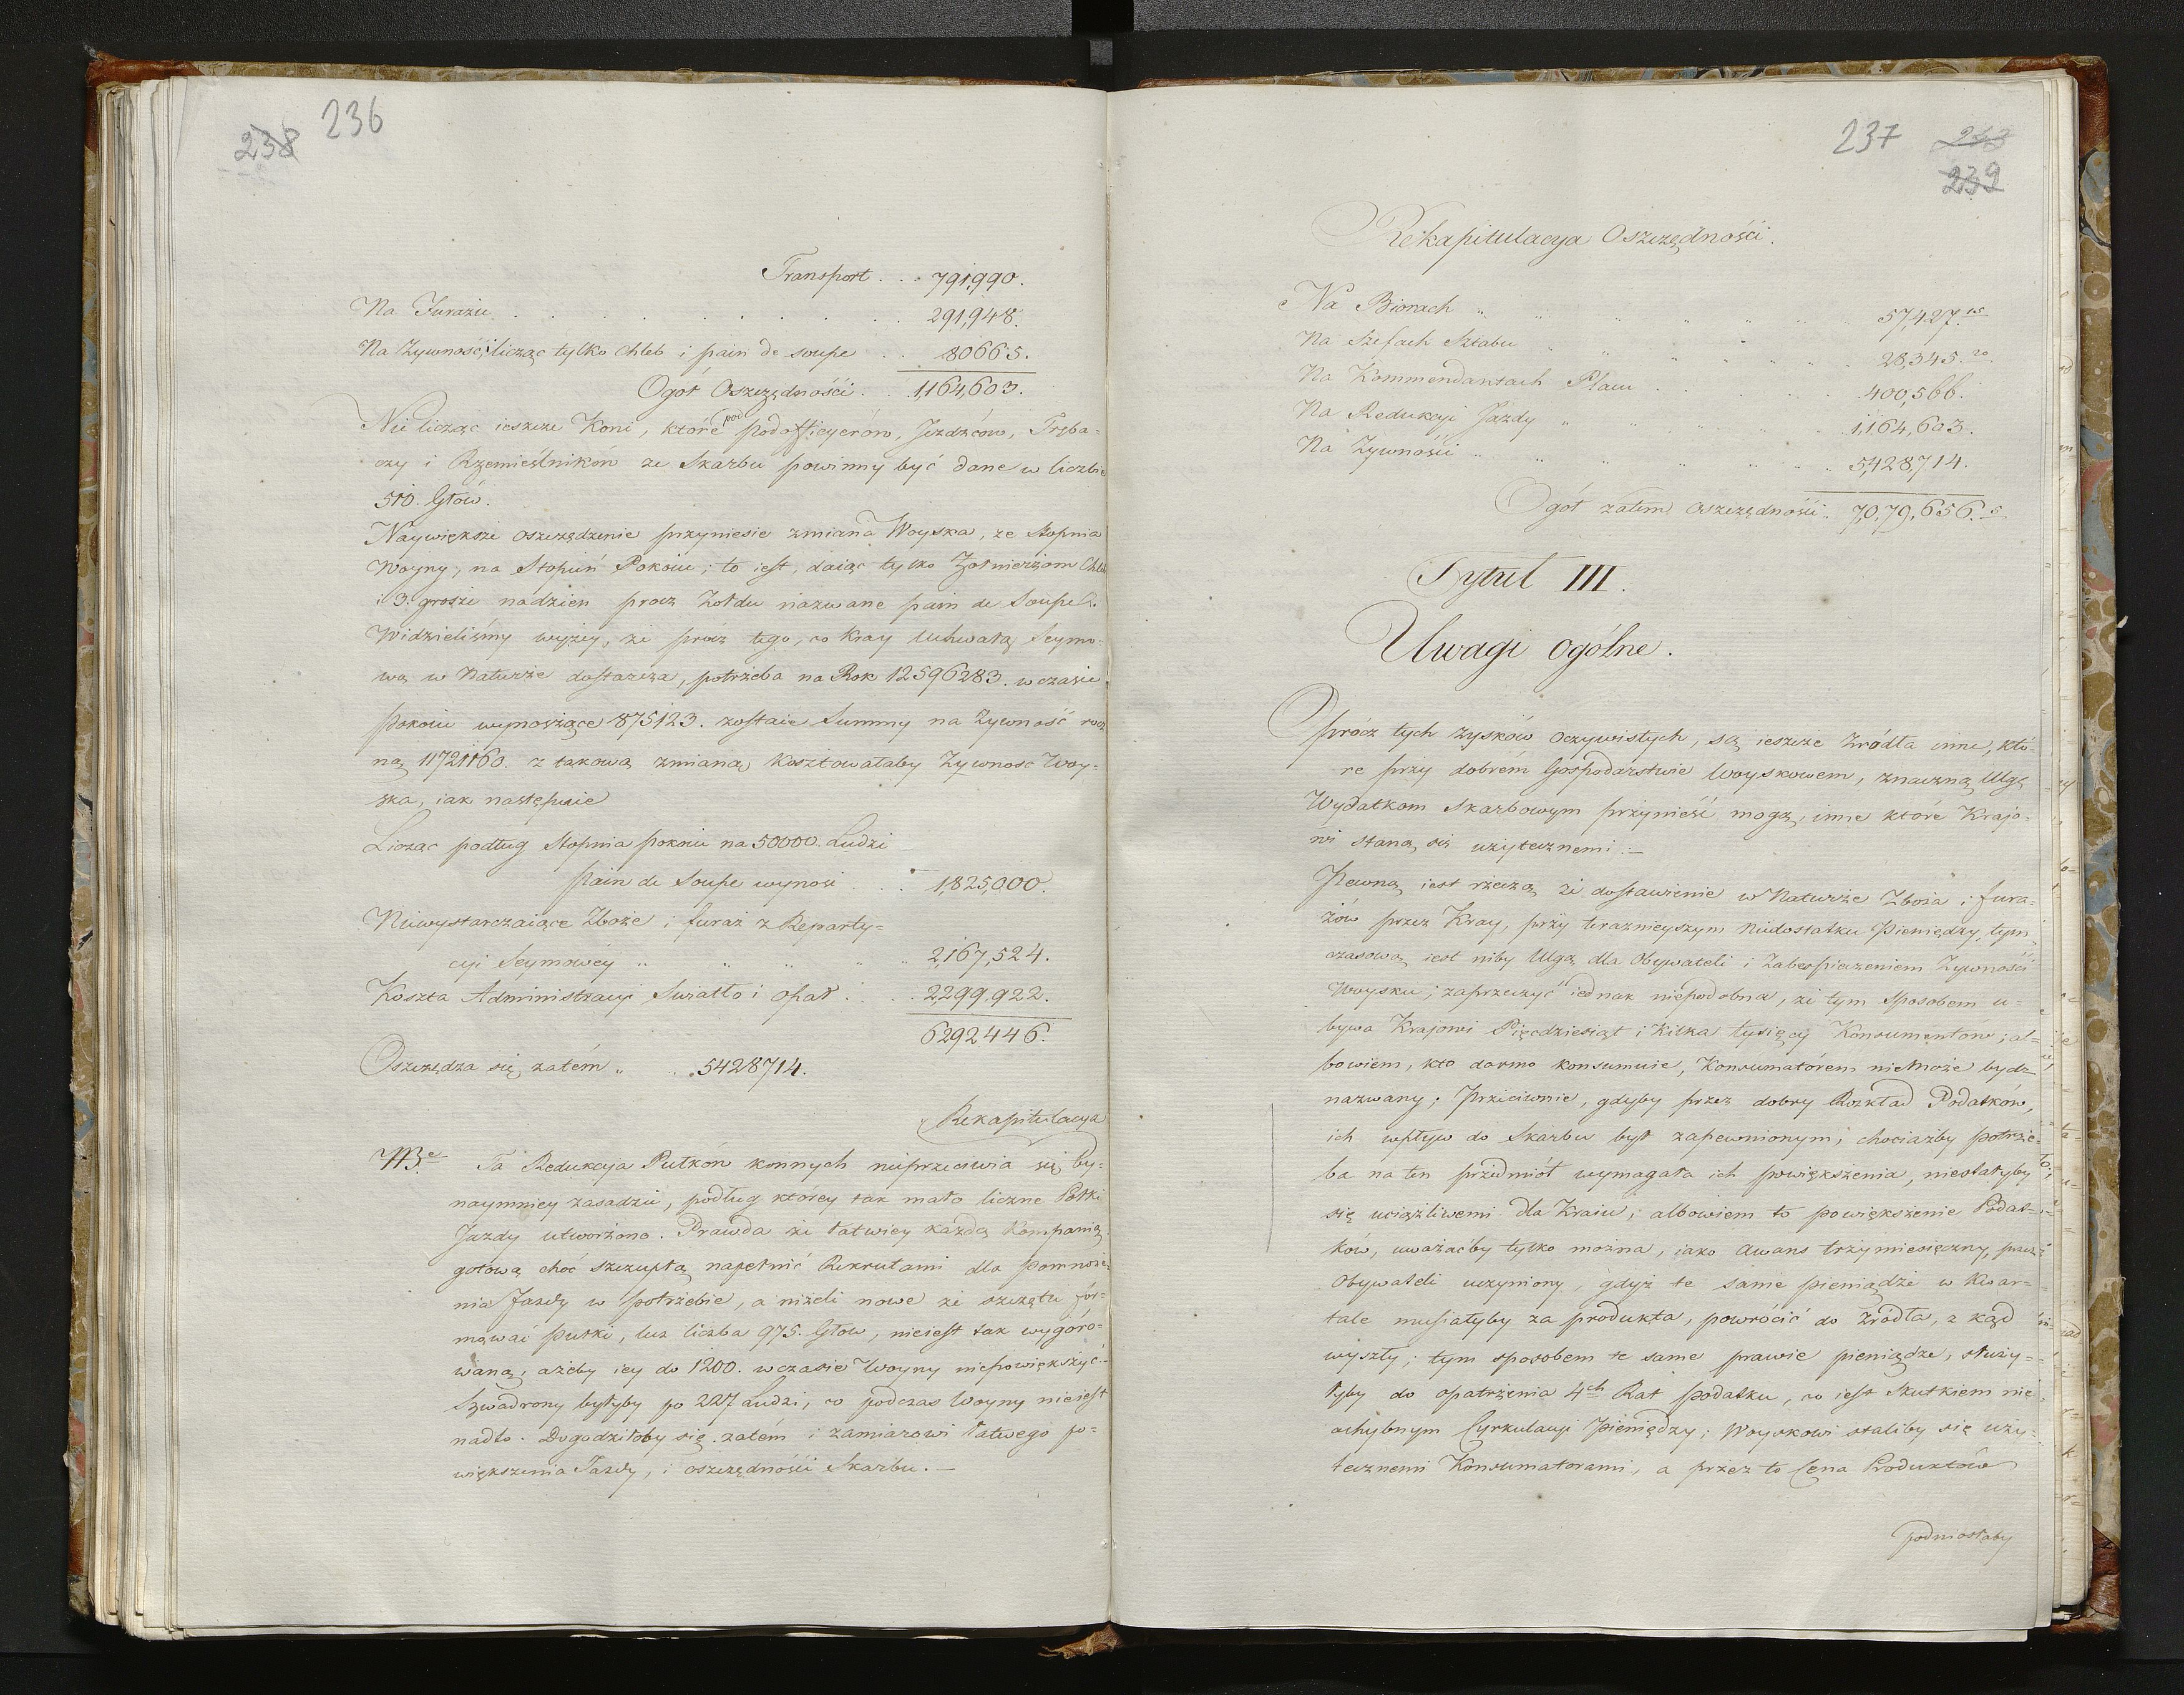 238 236
Transport . . . 791,990.
Na Furażu . . . . . . . . 291,948.
Na Zywność, licząc tylko chleb i pain de soupe . . 80665.
Ogół Oszczędności . . 1,164,603.
Nie licząc ieszcze Koni, które pod podofficyerów, Jezdzców, Tręba-
czy i Rzemieślników ze Skarbu powinny być dane w liczbie
510. Głów.
Naywiększe oszczędzenie przyniesie zmiana Woyska, ze Stopnia
Woyny, na Stopień Pokoiu; to iest, daiąc tylko Żołnierzom Chleb
i 3. grosze nadzień prócz Żołdu nazwane pain de Soupe.
Widzieliśmy wyżey, że prócz tego, co Kray Uchwałą Seymo-
wą w Naturze dostarcza, potrzeba na Rok 12596283. w czasie
pokoiu wynoszące 875123. zostaie Summy na Zywność rocz
ną 11721160. z takową zmianą Kosztowałaby Zywność Woy-
ska, iak następuie
Licząc podług Stopnia pokoiu na 50000. Ludzi
pain de Soupe wynosi . . . 1,825,000.
Niewystarczaiące Zboże i furaż z Reparty=
cyi Seymowéy „ „ „ „ „ 2,167,524.
Koszta Administracyi Swiatło i opał . . . 2299,922.
6292446.
Oszczędza się zatém „ . . 5428714.
Rekapitulacya
NBe Ta Redukcyja Pułków konnych nieprzeciwia się by-
naymniey zasadzie, podług którey tak mało liczne Półki
Jazdy utworzono. Prawda że łatwiey każdą Kompanią
gotową choć szczupłą napełnić Rekrutami dla pomnoże-
nia Jazdy w potrzebie, a niżeli nowe ze szczętu for-
mować pułki, lecz liczba 975. Głow, nieiest tak wygóro-
waną, ażeby iey do 1200. w czasie Woyny niepowiększyć
Szwadrony byłyby po 227 Ludzi, co podczas Woyny nieiest
nadto. Dogodziłoby się zatém i zamiarowi łatwego po=
większenia Jazdy, i oszczędności Skarbu. —
237 243
239
Rekapitulacya Oszczędności.
Na Biorach „ „ „ „ „ „ 57,427.15
Na Szefach Sztabu „ „ „ „ „ 28,345.20
Na Kommendantach Placu . . . . 400,566.
Na Redukcyi Jazdy „ „ „ „ 1,164,603.
Na Zywności „ „ „ „ „ „ 5,428,714.
Ogół zatem oszczędności . 7,0,79,656.5
Tytuł III.
Uwagi ogólne.
Oprócz tych zysków oczywistych, są ieszcze źródła inne, któ-
re przy dobrém Gospodarstwie Woyskowem, znaczną Ulgę
Wydatkom Skarbowym przynieść mogą, inne które Krajo-
wi staną się użytecznemi :—
Pewną iest rzeczą że dostawienie w Naturze Zboża i fura=
żów przez Kray, przy teraznieyszym Niedostatku Pieniędzy, tym
czasową iest niby Ulgą dla Obywateli i Zabespieczeniem Zywności
Woysku; zaprzeczyć iednak niepodobna, że tym sposobem u-
bywa Krajowi Pięćdziesiąt i kilka tysięcy Konsumentów; al=
bowiem, kto darmo konsumuie, Konsumatórem niemoże bydz
nazwany; Przeciwnie, gdyby przez dobry Rozkład Podatków,
ich wpływ do Skarbu był zapewnionym, chociażby potrze-
ba na ten przedmiot wymagała ich powiększenia, niestałyby
się uciążliwemi dla Kraiu; albowiem to powiększenie Podat-
ków, uważaćby tylko można, iako awans trzymiesięczny, przez
Obywateli uczyniony, gdyż te same pieniądze w Kwar-
tale musiałyby za produkta, powrócić do źródła, z kąd
wyszły; tym sposobem te same prawie pieniądze, służy=
łyby do opatrzenia 4ch Rat podatku, co iest Skutkiem nie
ochybnym Cyrkulacyi Pieniędzy; Woyskowi staliby się uży-
tecznemi Konsumatorami, a przez to Cena Produktów
podniosłaby